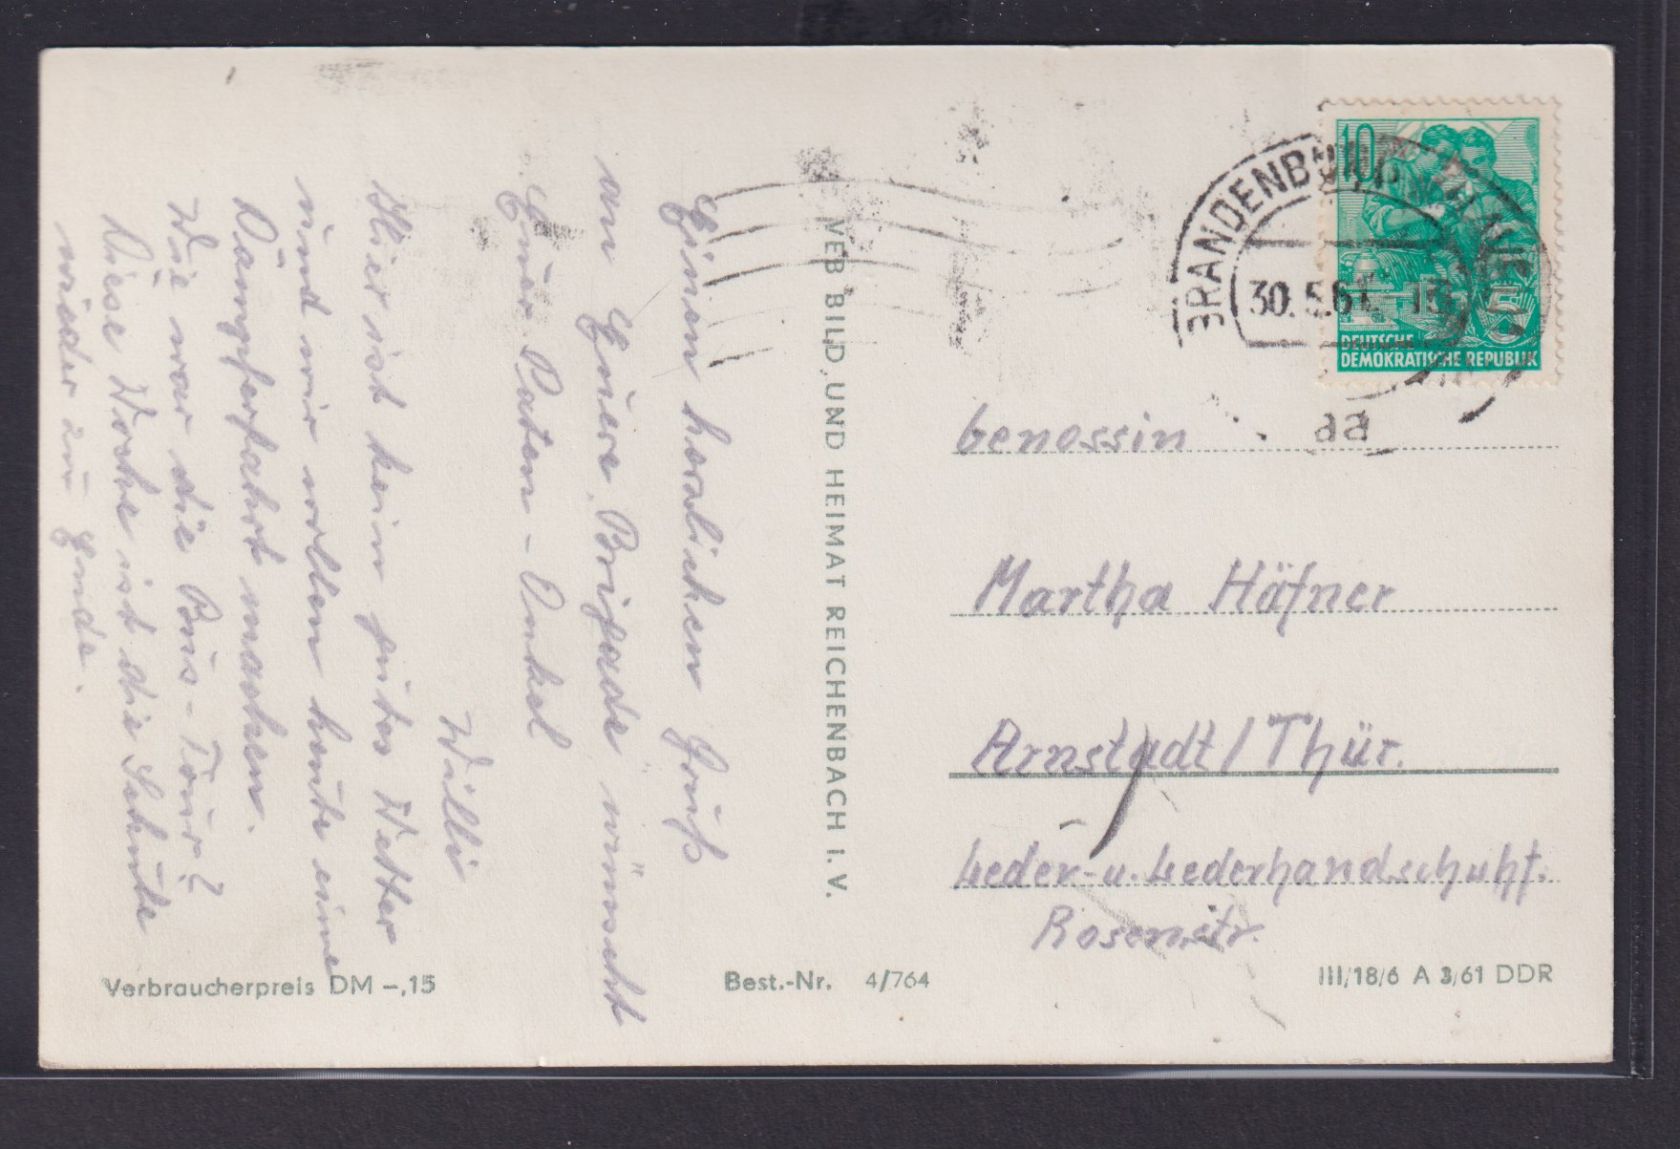 Einen herzlichen Gruß
an Euere Brigade wünscht
Euer Paten-Onkel
Willi
Hier ist kein gutes Wetter
und wir wollten heute eine
Dampferfahrt machen.
Wie war die Bus-Tour?
Diese Woche ist die Schule
wieder zu Ende.
VEB BILD UND HEIMAT REICHENBACH I. V.
BRANDENBURG (HAVEL)
30.5.61
aa
10
DEUTSCHE
DEMOKRATISCHE REPUBLIK
Genossin
Martha Häfner
Arnstadt/Thür.
Leder-u. Lederhandschuhf.
Rosenstr.
Verbraucherpreis DM -,15
Best.-Nr. 4/764
III/18/6 A 3/61 DDR